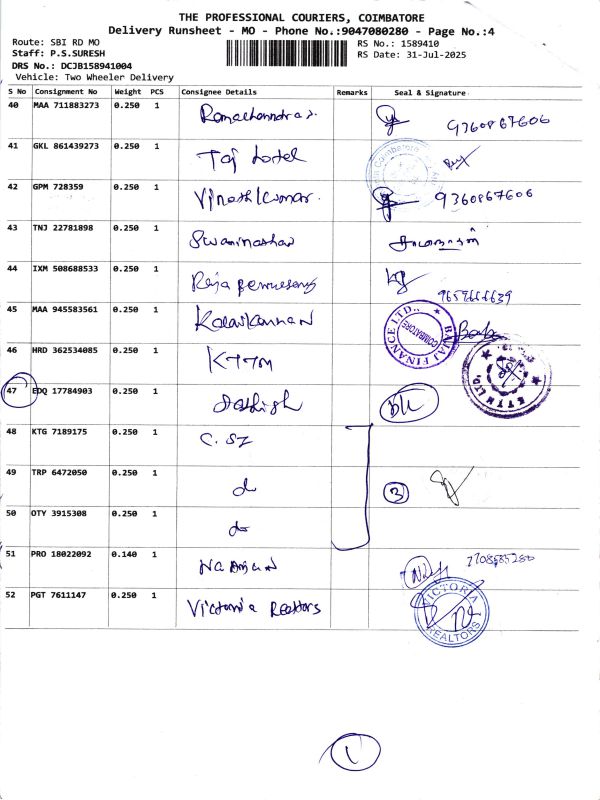 THE PROFESSIONAL COURIERS, COIMBATORE
Delivery Runsheet - MO - Phone No.:9047080280 - Page No.:4
Route: SBI RD MO
Staff: P.S.SURESH
DRS No.: DCJB158941004
Vehicle: Two Wheeler Delivery
RS No.: 1589410
RS Date: 31-Jul-2025
S No Consignment No Weight PCS Consignee Details Remarks Seal & Signature
40 MAA 711883273 0.250 1 9360867606
41 GKL 861439273 0.250 1 Taj hotel
42 GPM 728359 0.250 1 Vinothkumar 9360867606
43 TNJ 22781898 0.250 1
44 IXM 508688533 0.250 1
45 MAA 945583561 0.250 1 Kalaikannan BAJAJ FINANCE LTD., COIMBATORE
46 HRD 362534085 0.250 1 KTTM KTTM LTD
47 EDQ 17784903 0.250 1
48 KTG 7189175 0.250 1
49 TRP 6472050 0.250 1 do 3
50 OTY 3915308 0.250 1 do
51 PRO 18022092 0.140 1
52 PGT 7611147 0.250 1 Victoria Realtors VICTORIA REALTORS
1